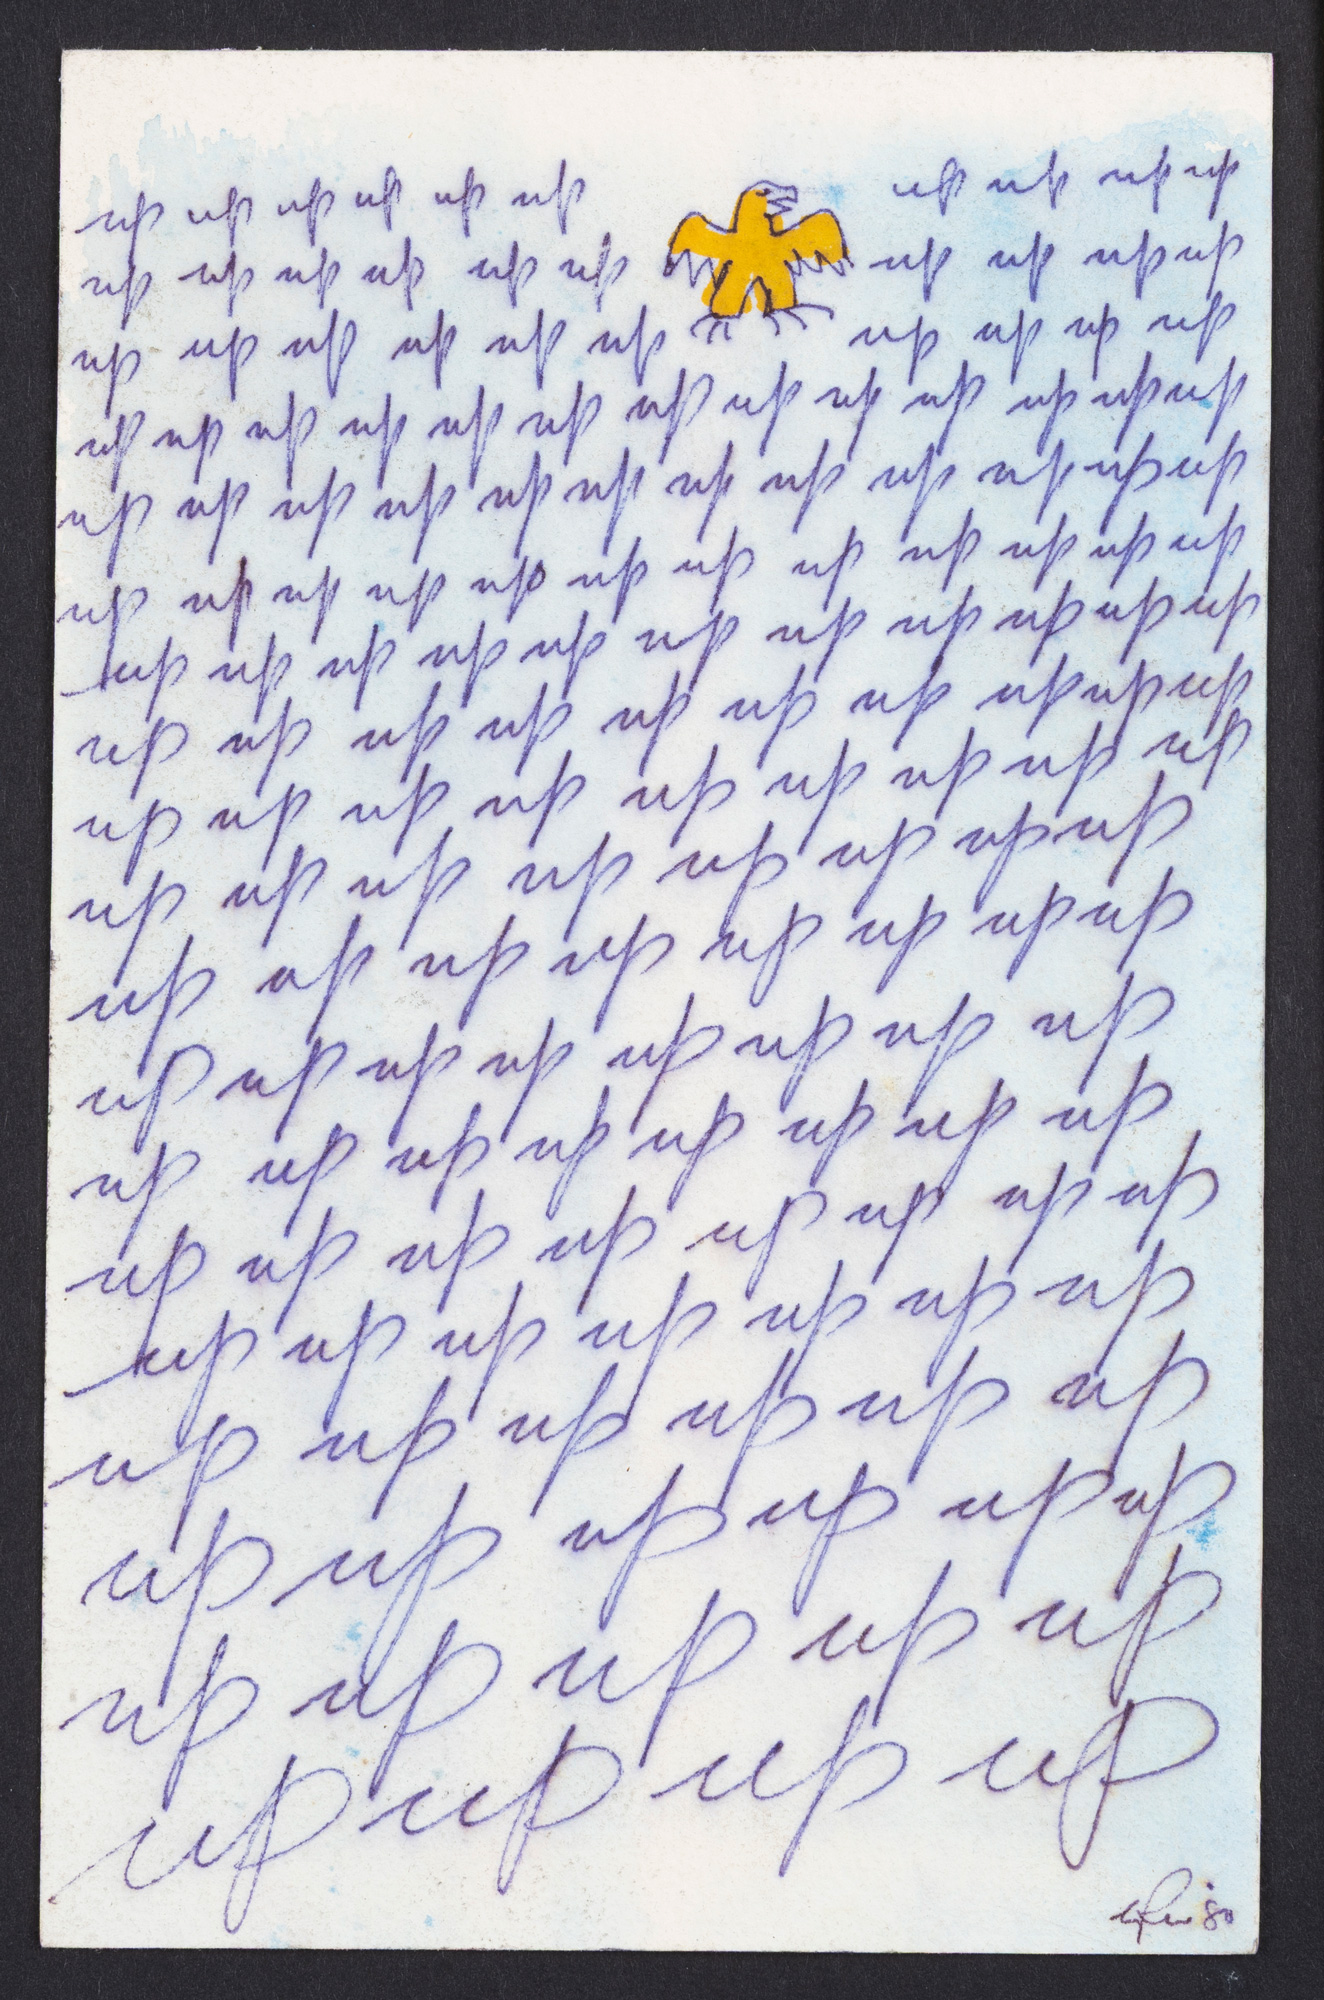 up up up up up up up up up up
up up up up up up up up up up
up up up up up up up up up up
up up up up up up up up up up up up up
up up up up up up up up up up up up
up up up up up up up up up up up up
up up up up up up up up up up up
up up up up up up up up up up
up up up up up up up up up
up up up up up up up up
up up up up up up up up
up up up up up up up up
up up up up up up up up
up up up up up up up up
up up up up up up up
up up up up up up
up up up up up up
up up up up up
up up up up
'80